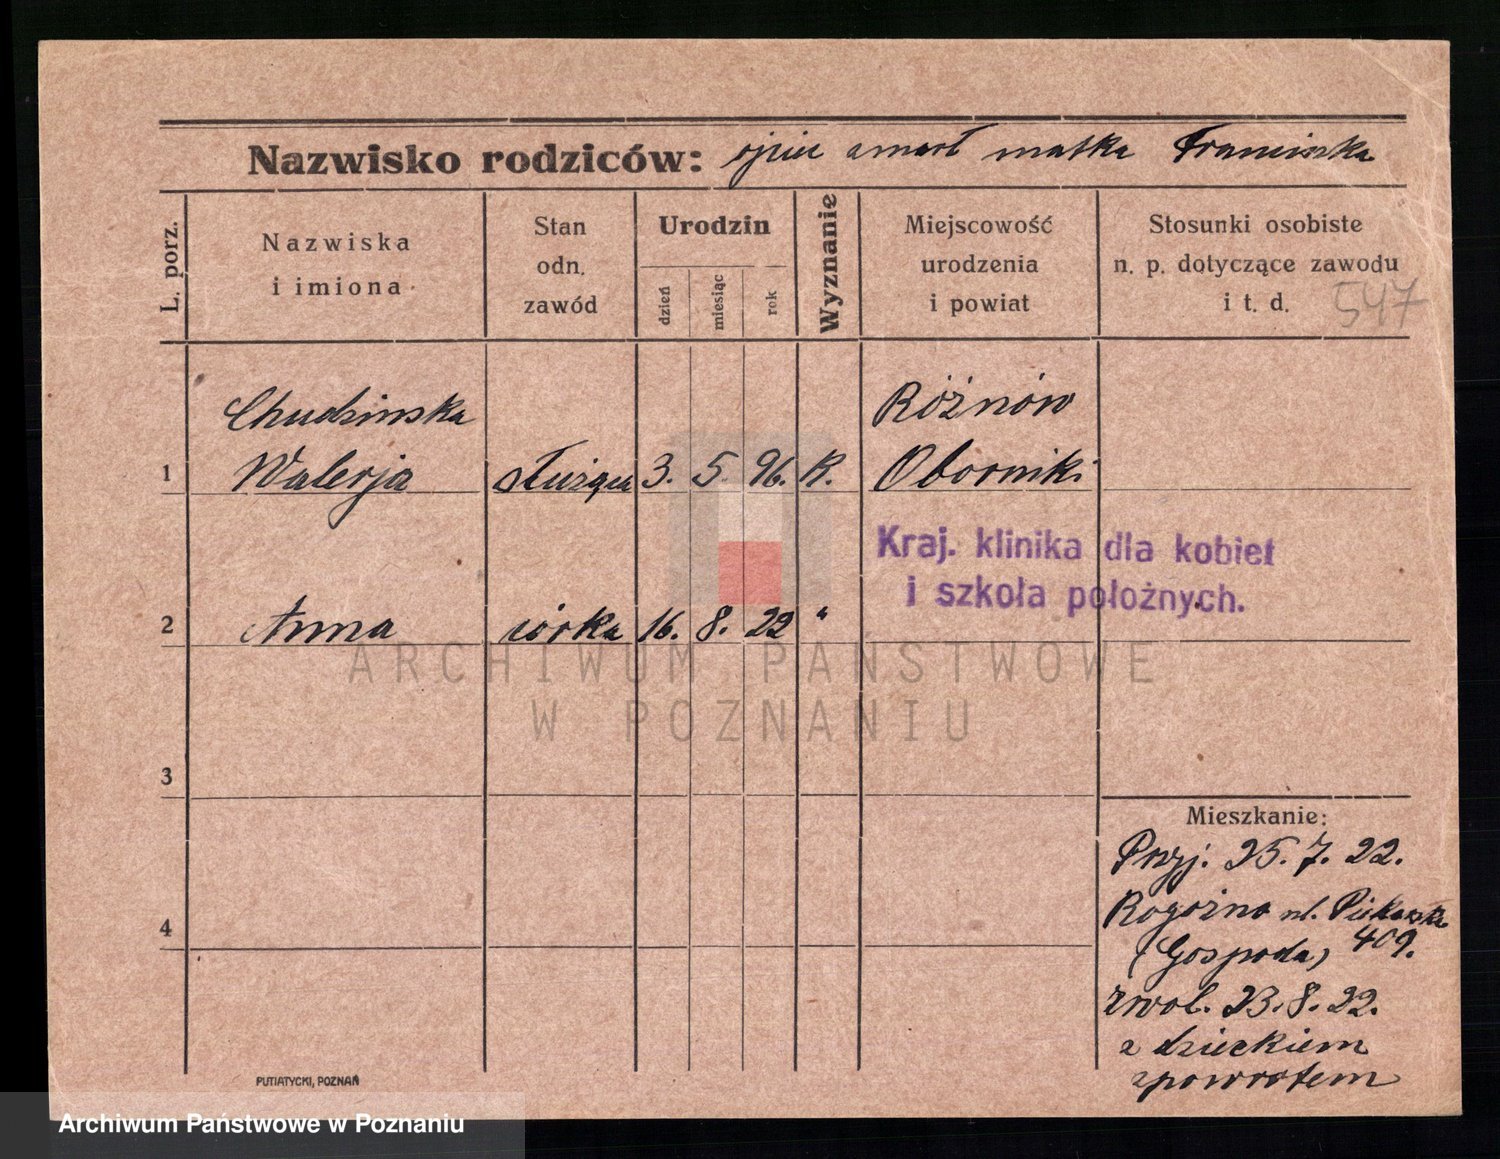 Nazwisko rodziców: ojciec zmarł matka Franciszka
L. porz.
Nazwiska
i imiona
Stan
odn.
zawód
Urodzin
dzień
miesiąc
rok
Wyznanie
Miejscowość
urodzenia
i powiat
Stosunki osobiste
n. p. dotyczące zawodu
i t. d.
547
Chudzinska
Różnów
1 Walerja służąca 3. 5. 96. K. Oborniki
Kraj. klinika dla kobiet
i szkoła położnych.
2 Anna córka 16. 8. 22 "
ARCHIWUM PAŃSTWOWE
W POZNANIU
3
Mieszkanie:
Przyj. 25. 7. 22.
4 Rogoźno ul.
(Gospoda) 409.
zwol. 23. 8. 22.
z dzieckiem
zpowrotem
PUTIATYCKI, POZNAŃ
Archiwum Państwowe w Poznaniu